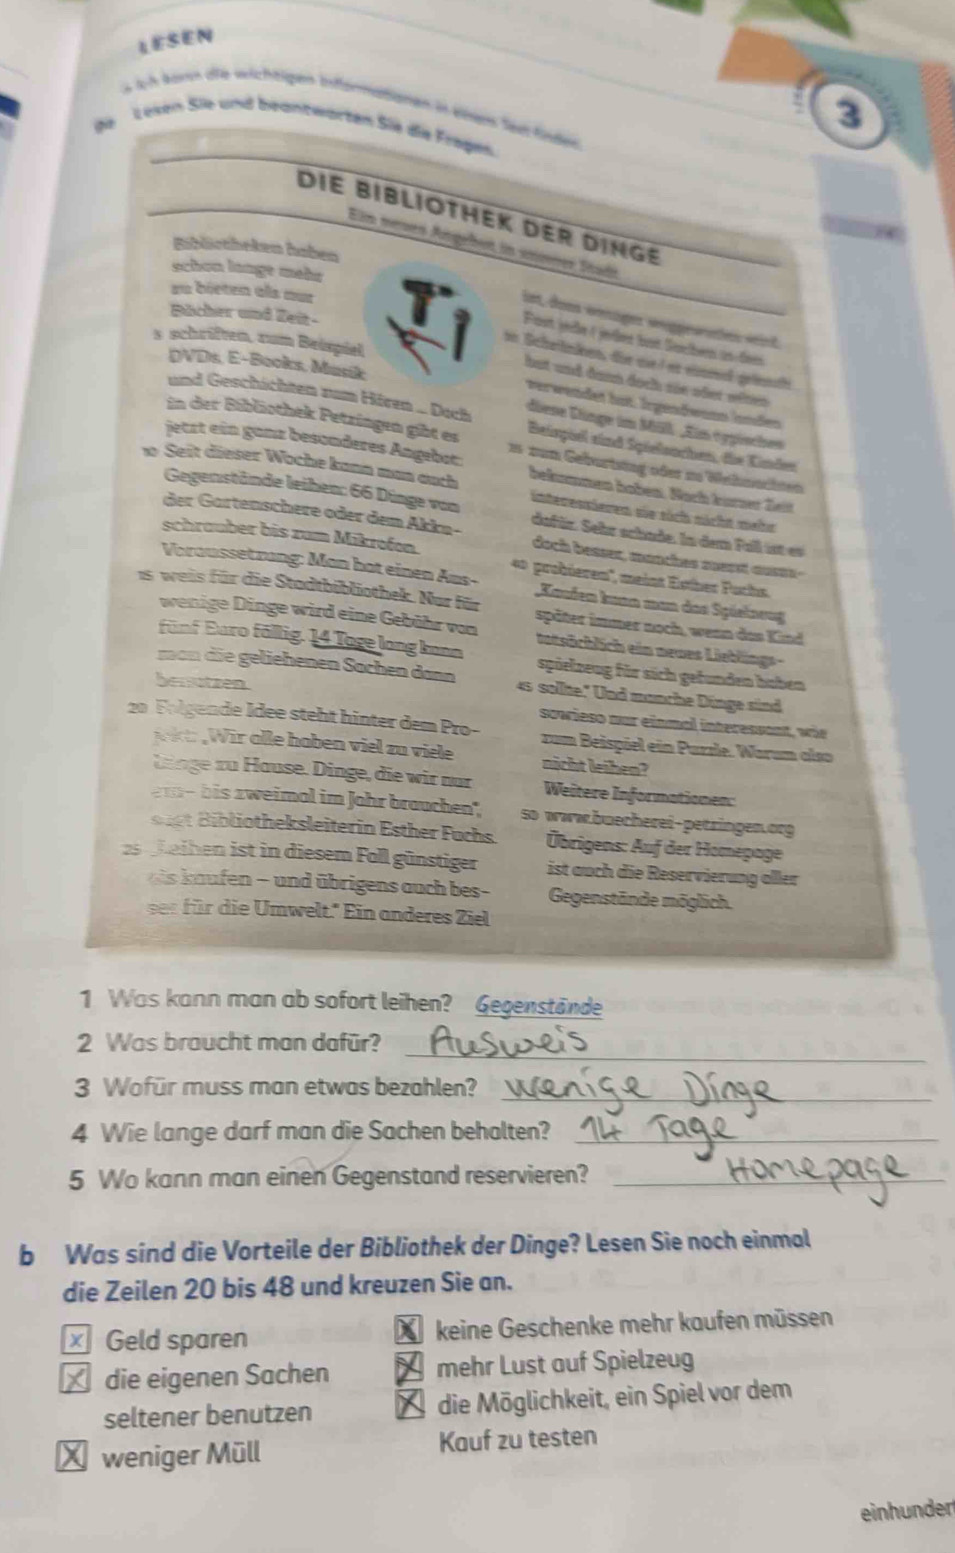 LESEN
Ich kann die wichtigen Informationen in einem Text finden.
9a Lesen Sie und beantworten Sie die Fragen.
3
DIE BIBLIOTHEK DER DINGE
Ein neues Angebot in unserer Stadt
Bibliotheken haben
schon lange mehr
zu bieten als nur
Bücher und Zeit-
5 schriften, zum Beispiel
DVDs, E-Books, Musik
und Geschichten zum Hören ... Doch
in der Bibliothek Petzingen gibt es
jetzt ein ganz besonderes Angebot:
10 Seit dieser Woche kann man auch
Gegenstände leihen: 66 Dinge von
der Gartenschere oder dem Akku-
schrauber bis zum Mikrofon.
Voraussetzung: Man hat einen Aus-
15 weis für die Stadtbibliothek. Nur für
wenige Dinge wird eine Gebühr von
fünf Euro fällig. 14 Tage lang kann
man die geliehenen Sachen dann
benutzen.
20 Folgende Idee steht hinter dem Pro-
jekt: „Wir alle haben viel zu viele
Dinge zu Hause. Dinge, die wir nur
ein- bis zweimal im Jahr brauchen",
sagt Bibliotheksleiterin Esther Fuchs.
25 „Leihen ist in diesem Fall günstiger
als kaufen – und übrigens auch bes-
ser für die Umwelt." Ein anderes Ziel
ist, dass weniger weggeworfen wird.
Fast jede / jeder hat Sachen in den
30 Schränken, die sie / er einmal gekauft
hat und dann doch nie oder selten
verwendet hat. Irgendwann landen
diese Dinge im Müll. „Ein typisches
Beispiel sind Spielsachen, die Kinder
35 zum Geburtstag oder zu Weihnachten
bekommen haben. Nach kurzer Zeit
interessieren sie sich nicht mehr
dafür. Sehr schade. In dem Fall ist es
doch besser, manches zuerst auszu-
40 probieren", meint Esther Fuchs.
„Kaufen kann man das Spielzeug
später immer noch, wenn das Kind
tatsächlich ein neues Lieblings-
spielzeug für sich gefunden haben
45 sollte." Und manche Dinge sind
sowieso nur einmal interessant, wie
zum Beispiel ein Puzzle. Warum also
nicht leihen?
Weitere Informationen:
50 www.buecherei-petzingen.org
Übrigens: Auf der Homepage
ist auch die Reservierung aller
Gegenstände möglich.
1 Was kann man ab sofort leihen? Gegenstände
2 Was braucht man dafür? Ausweis
3 Wofür muss man etwas bezahlen? wenige Dinge
4 Wie lange darf man die Sachen behalten? 14 Tage
5 Wo kann man einen Gegenstand reservieren? Homepage
b Was sind die Vorteile der Bibliothek der Dinge? Lesen Sie noch einmal
die Zeilen 20 bis 48 und kreuzen Sie an.
x Geld sparen
X die eigenen Sachen
seltener benutzen
X weniger Müll
X keine Geschenke mehr kaufen müssen
X mehr Lust auf Spielzeug
X die Möglichkeit, ein Spiel vor dem
Kauf zu testen
einhunder